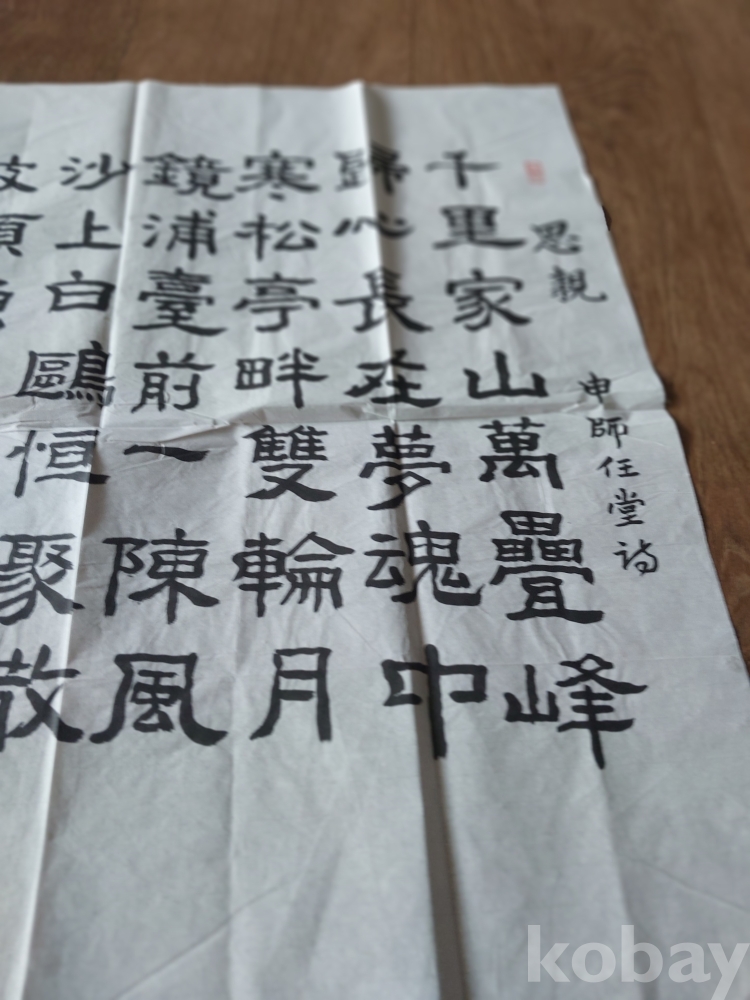 思親
申師任堂詩
千里家山萬疊峰
歸心長在夢魂中
寒松亭畔雙輪月
鏡浦臺前一陳風
沙上白鷗恒聚散
kobay